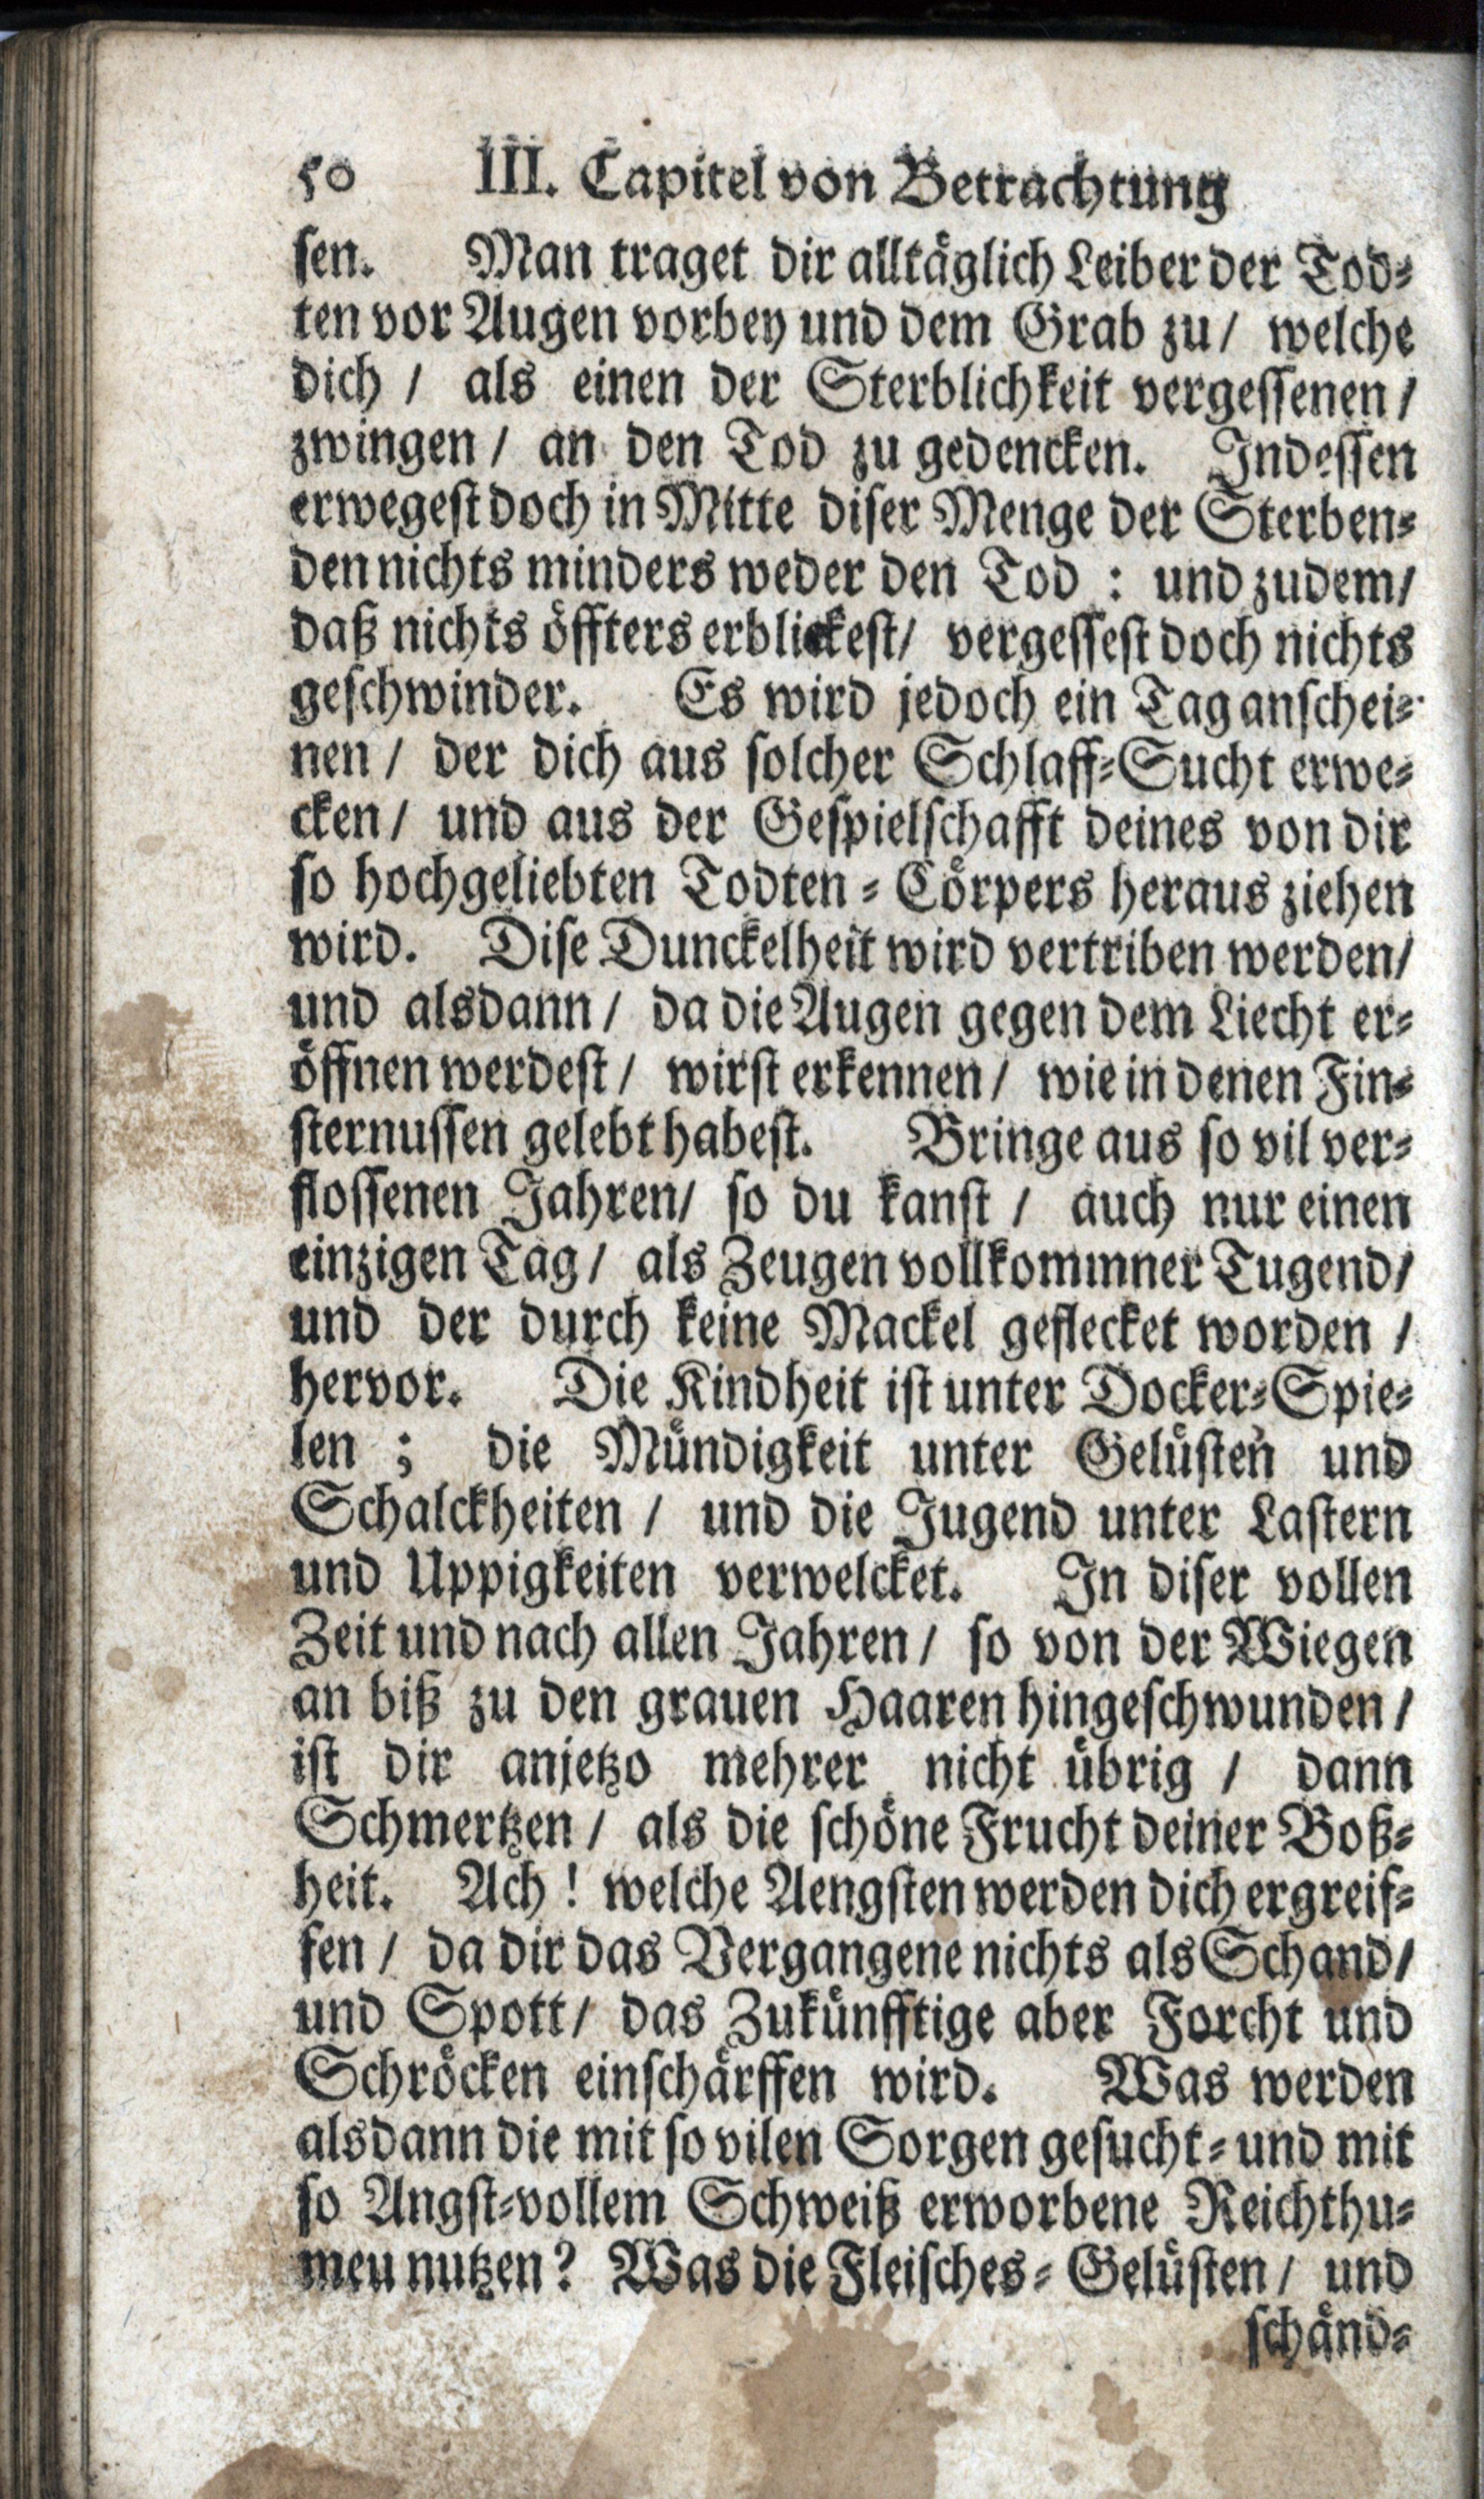 50 III. Capitel von Betrachtung
sen. Man traget dir alltäglich Leiber der Tod-
ten vor Augen vorbey und dem Grab zu/ welche
dich / als einen der Sterblichkeit vergessenen /
zwingen / an den Tod zu gedencken. Indessen
erwegest doch in Mitte diser Menge der Sterben-
den nichts minders weder den Tod : und zudem/
daß nichts öffters erblickest/ vergessest doch nichts
geschwinder. Es wird jedoch ein Tag anschei-
nen / der dich aus solcher Schlaff-Sucht erwe-
cken / und aus der Gespielschafft deines von dir
so hochgeliebten Todten - Cörpers heraus ziehen
wird. Dise Dunckelheit wird vertriben werden/
und alsdann / da die Augen gegen dem Liecht er-
öffnen werdest / wirst erkennen / wie in denen Fin-
sternussen gelebt habest. Bringe aus so vil ver-
flossenen Jahren/ so du kanst / auch nur einen
einzigen Tag / als Zeugen vollkommner Tugend/
und der durch keine Mackel geflecket worden /
hervor. Die Kindheit ist unter Docker-Spie-
len ; die Mündigkeit unter Gelüsten und
Schalckheiten / und die Jugend unter Lastern
und Uppigkeiten verwelcket. In diser vollen
Zeit und nach allen Jahren / so von der Wiegen
an biß zu den grauen Haaren hingeschwunden /
ist dir anjetzo mehrer nicht übrig / dann
Schmertzen / als die schöne Frucht deiner Boß-
heit. Ach ! welche Aengsten werden dich ergreif-
fen / da dir das Vergangene nichts als Schand/
und Spott/ das Zukünfftige aber Forcht und
Schröcken einschärffen wird. Was werden
alsdann die mit so vilen Sorgen gesucht- und mit
so Angst-vollem Schweiß erworbene Reichthu-
meu nutzen? Was die Fleisches- Gelüsten / und
schänd-